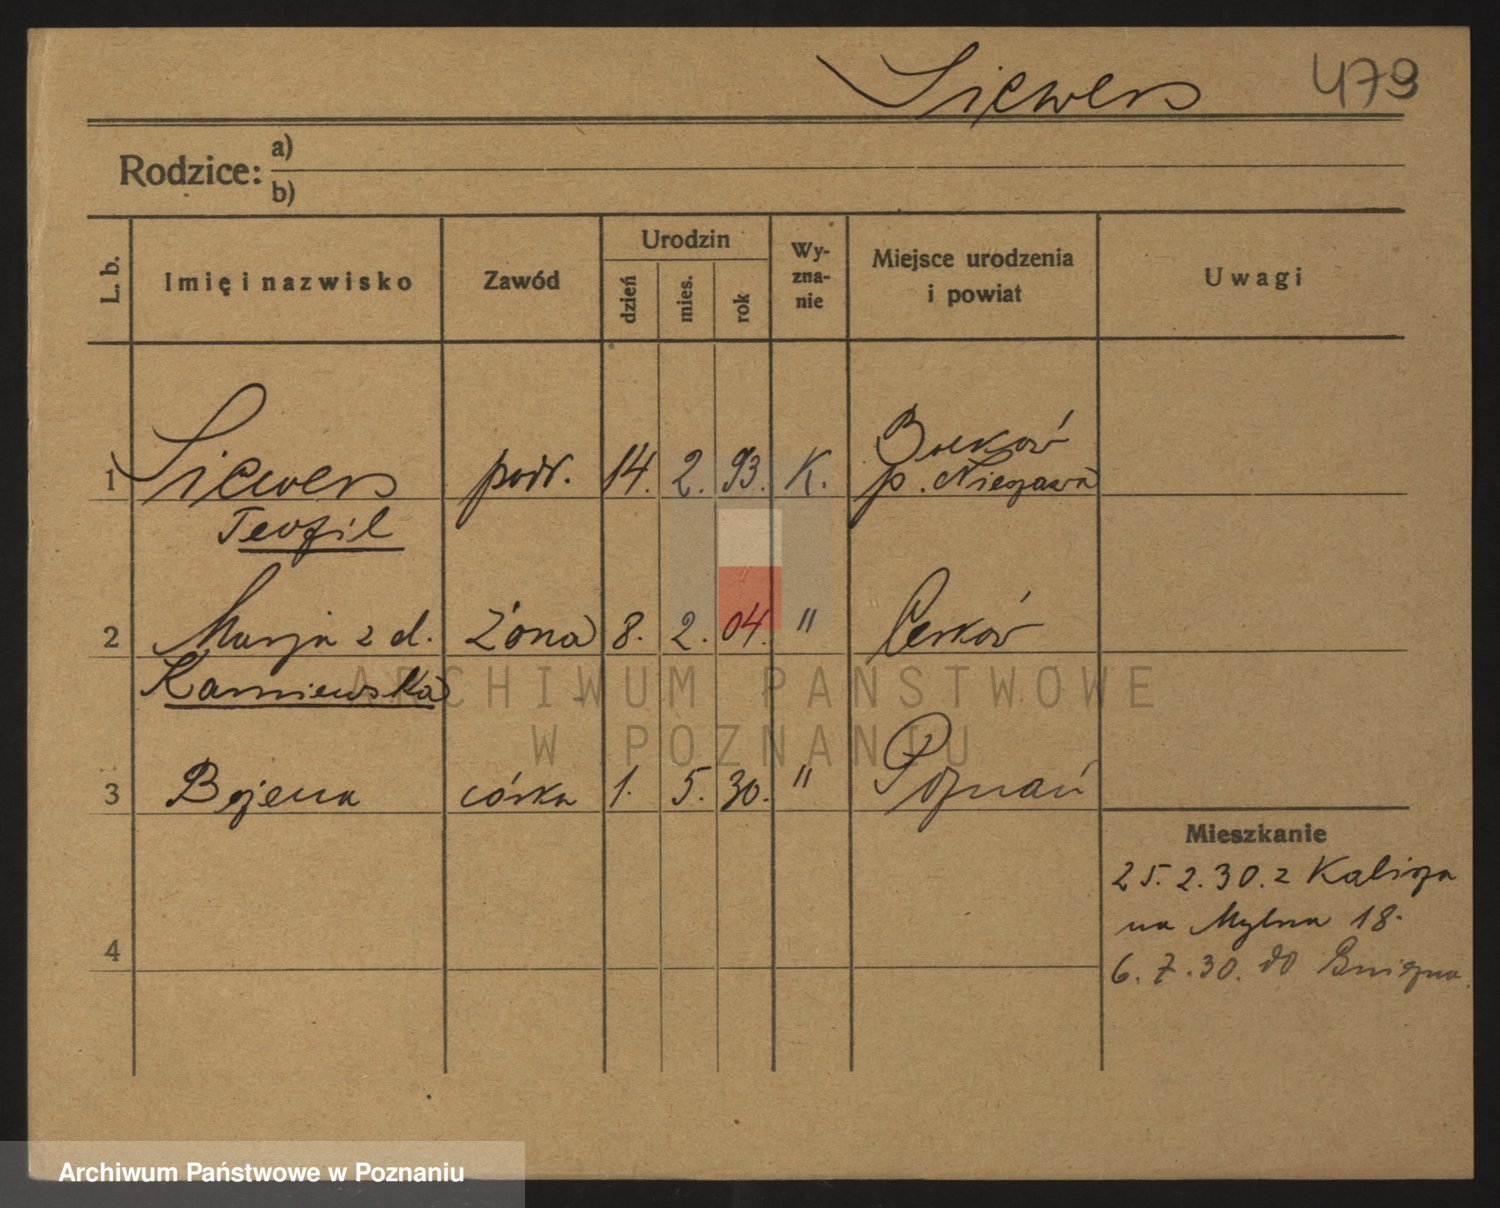 Siewers 479
Rodzice: a)
b)
L. b. Imię i nazwisko Zawód Urodzin dzień mies. rok Wy-zna-nie Miejsce urodzenia i powiat Uwagi
1 Siewers podr. 14. 2. 93. K.
p. Nieszawa
Teofil
2 Marja z d. Żona 8. 2. 04. " Cerków
Karniewska
3 Bojena córka 1. 5. 30. " Poznań
Mieszkanie
25.2.30. z Kalisza
na Mylna 18.
4
6.7.30. do Gniezna.
ARCHIWUM PAŃSTWOWE
W POZNANIU
Archiwum Państwowe w Poznaniu